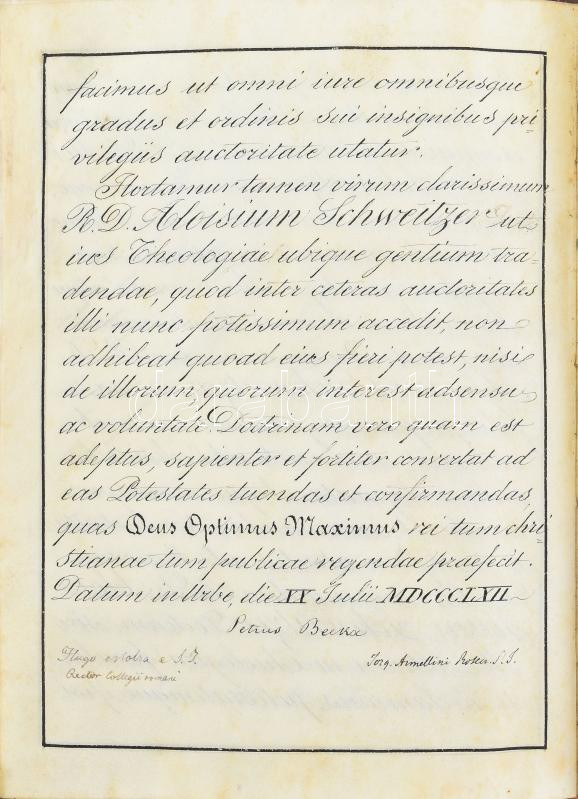 facimus ut omni iure omnibusque
gradus et ordinis sui insignibus pri=
vilegiis auctoritate utatur.
Hortamur tamen virum clarissimum
R. D. Aloisium Schweitzer ut
ius Theologiae ubique gentium tra=
dendae, quod inter ceteras auctoritates
illi nunc potissimum accedit, non
adhibeat quoad eius fieri potest, nisi
de illorum, quorum interest adsensu
ac voluntate. Doctrinam vero quam est
adeptus, sapienter et fortiter convertat ad
eas Potestates tuendas et confirmandas,
quas Deus Optimus Maximus rei tum chri=
stianae tum publicae regendae praefecit.
Datum in Urbe, die XX Julii MDCCCLXII
Petrus Beckx
Hugo e S. J.
Rector Collegii romani
Torq. Armellini S. J.